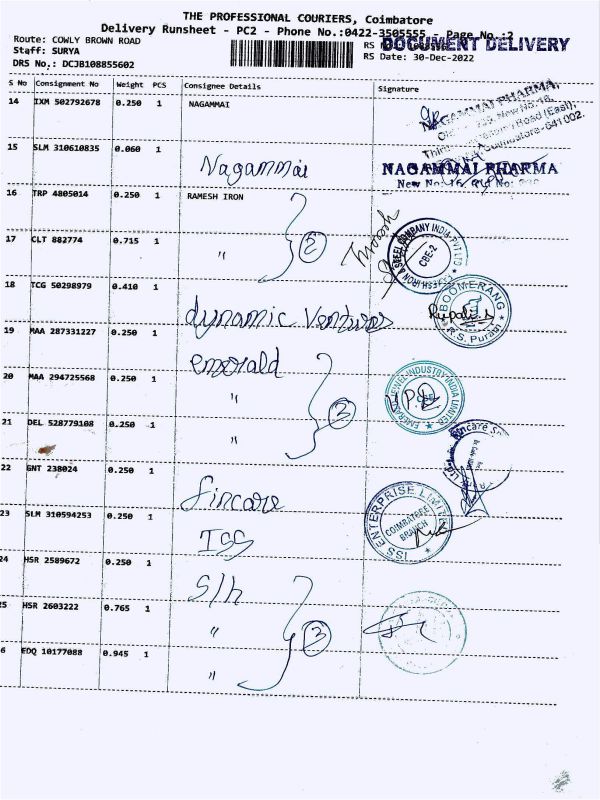 THE PROFESSIONAL COURIERS, Coimbatore
Delivery Runsheet - PC2 - Phone No.:0422-3505555 - Page No.:2
Route: COWLY BROWN ROAD
Staff: SURYA
DRS No.: DCJB108855602
RS No
DOCUMENT DELIVERY
RS Date: 30-Dec-2022
S No Consignment No Weight PCS Consignee Details Signature
14 IXM 502792678 0.250 1 NAGAMMAI
NAGAMMAI PHARMA,
Coimbatore-641 002.
15 SLM 310610835 0.060 1 Nagammai
NAGAMMAI PHARMA
16 TRP 4805014 0.250 1 RAMESH IRON
17 CLT 882774 0.715 1 " 2
STEEL COMPANY INDIA PVT LTD
CBE-2
18 TCG 50298979 0.410 1 dynamic Ventures
BOOMERANG
R.S. Puram
19 MAA 287331227 0.250 1 emerald
20 MAA 294725568 0.250 1 " 3
EMERALD JEWEL INDUSTRY INDIA LIMITED
21 DEL 528779108 0.250 1 "
22 GNT 238024 0.250 1 Fincare
23 SLM 310594253 0.250 1 ISS
ISS ENTERPRISE LIMITED
COIMBATORE
BRANCH
24 HSR 2589672 0.250 1 S/h
25 HSR 2603222 0.765 1 " 3
6 EDQ 10177088 0.945 1 "